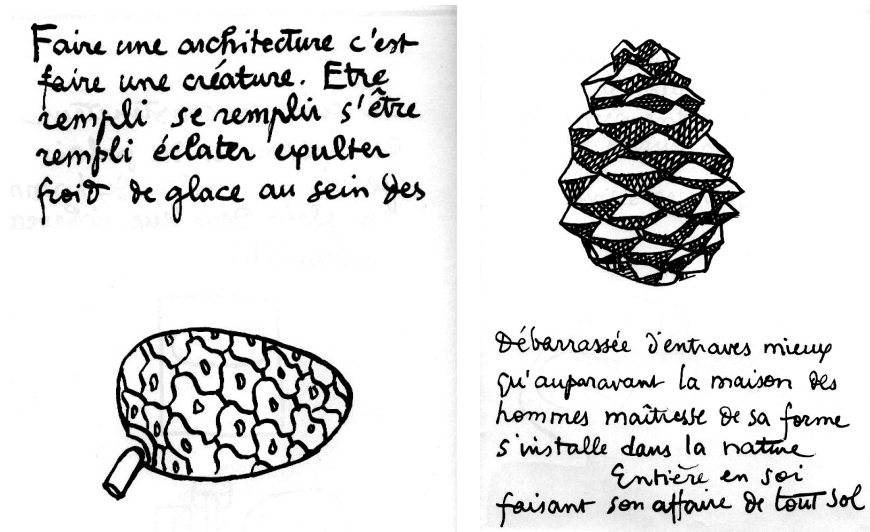 Faire une architecture c'est
faire une créature. Etre
rempli se remplir s'être
rempli éclater exulter
froid de glace au sein des
Débarrassée d'entraves mieux
qu'auparavant la maison des
hommes maîtresse de sa forme
s'installe dans la nature
Entière en soi
faisant son affaire de tout sol